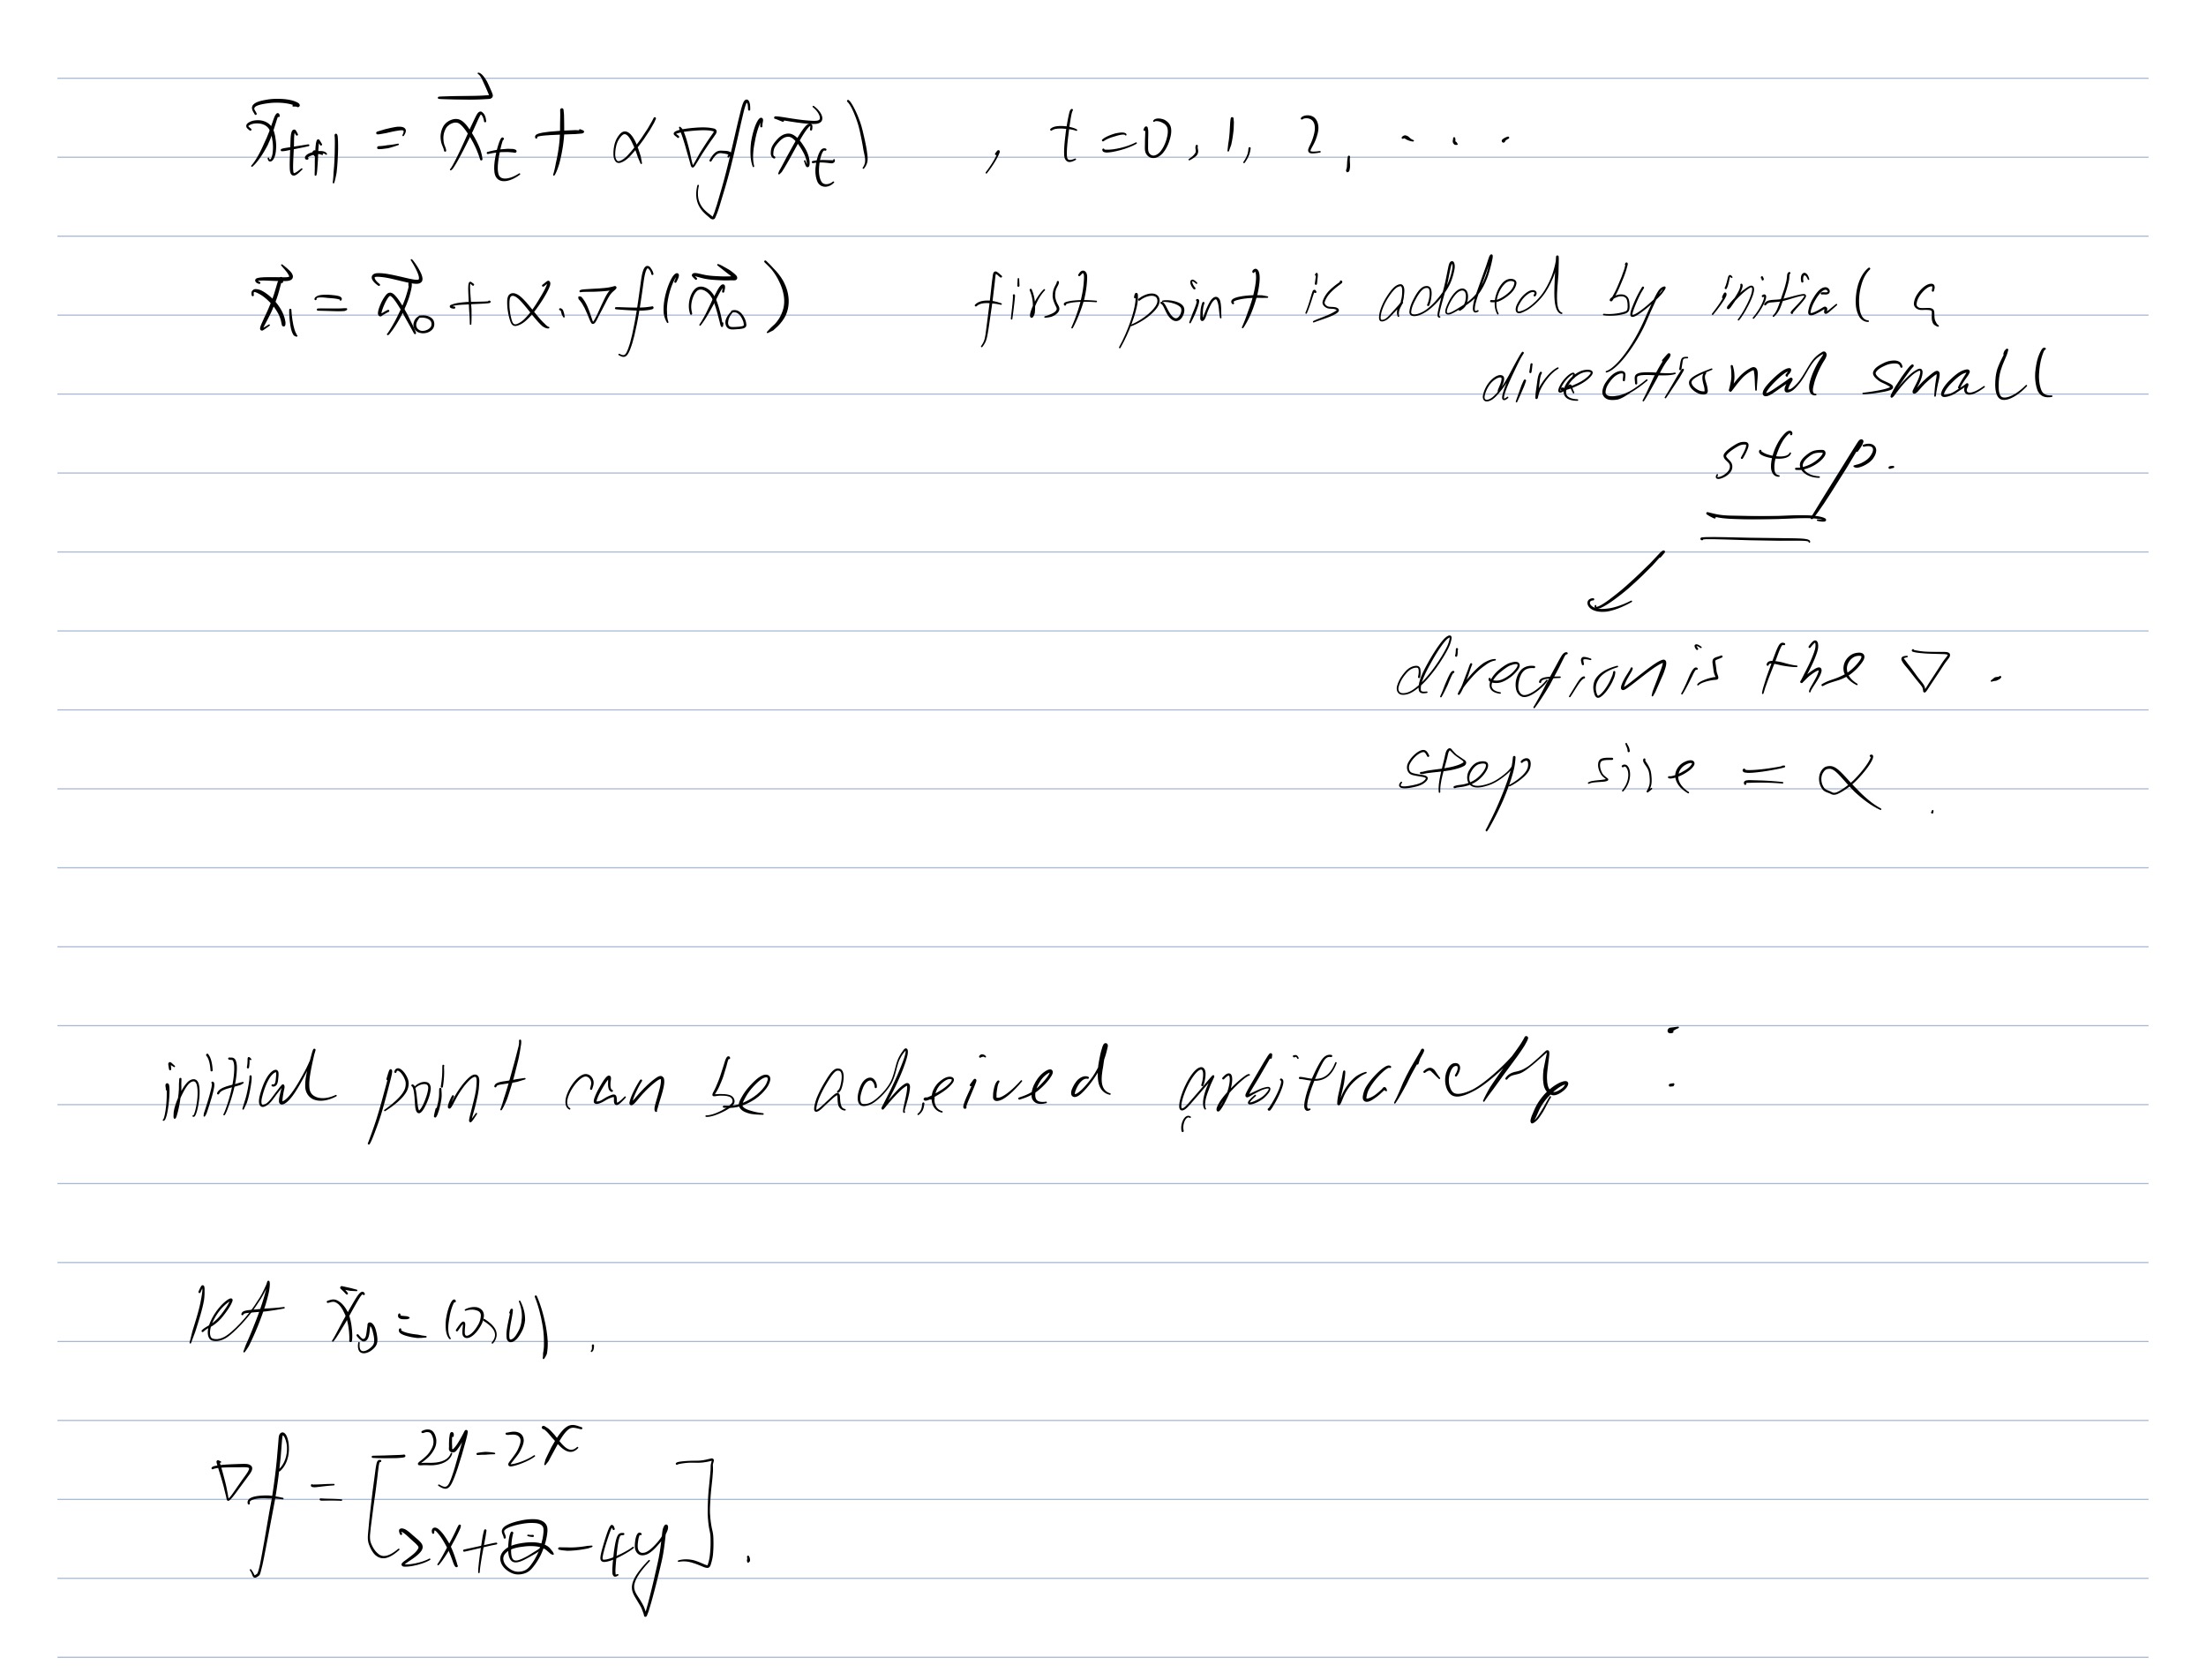 x⃗ₜ₊₁ = x⃗ₜ + α ∇f(x⃗ₜ) , t=0, 1, 2, ...
x⃗₁ = x⃗₀ + α.∇f(x⃗₀) first point is added by initial &
directional small
step.
direction is the ∇.
step size = α.
initial point can be arbitrarily :
let x⃗₀ = (0,0).
∇f = [2y-2x
2x+2-4y].